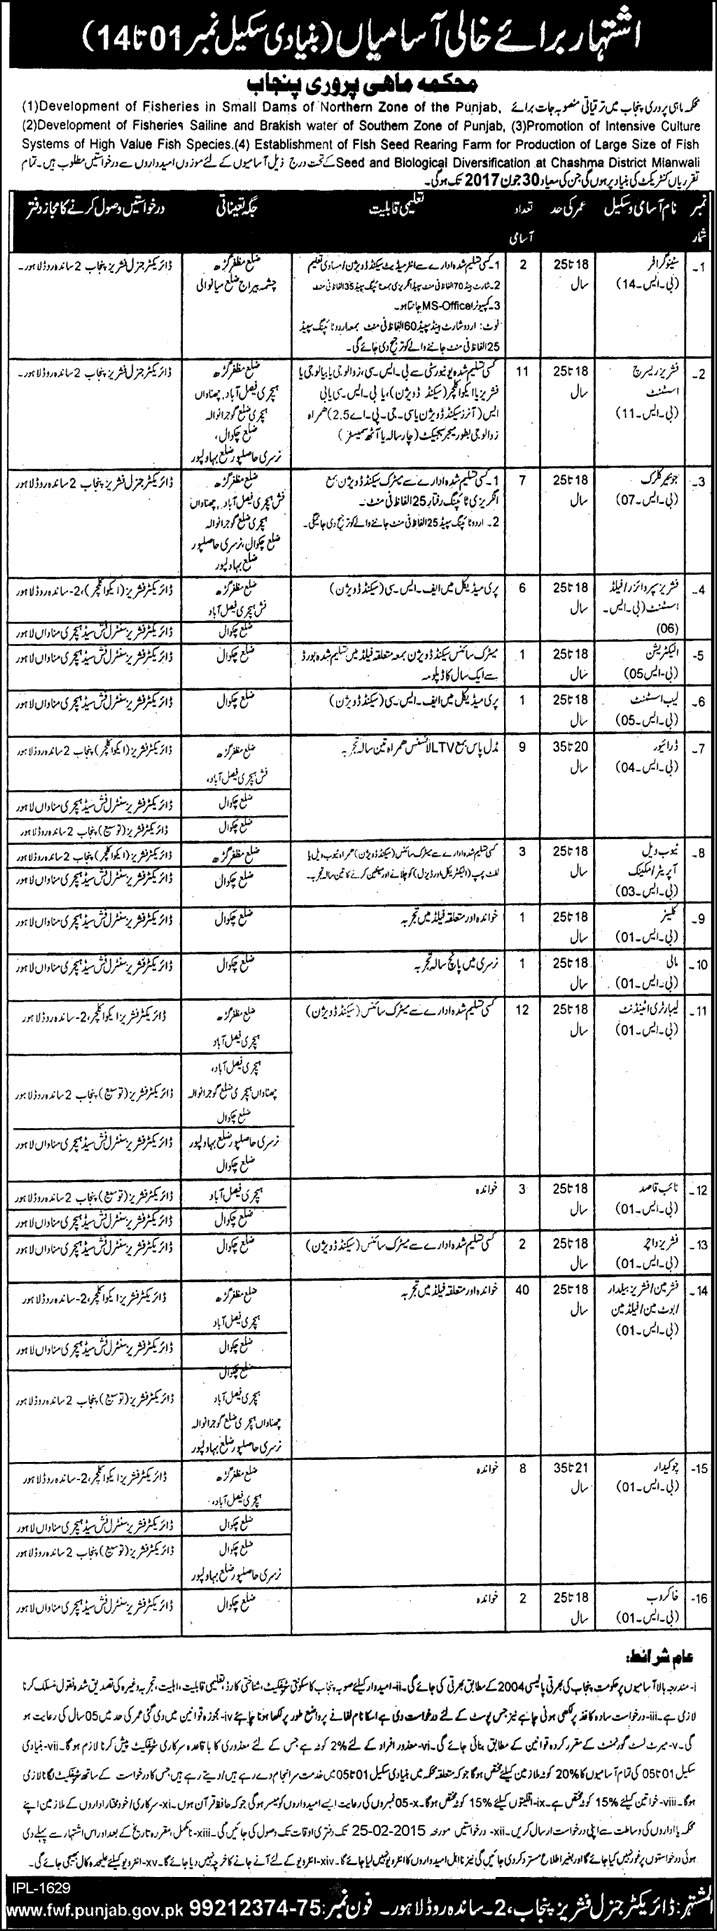 اشتہار برائے خالی آسامیاں (بنیادی سکیل نمبر 01 تا 14)
محکمہ ماہی پروری پنجاب
محکمہ ماہی پروری پنجاب میں ترقیاتی منصوبہ جات برائے (1)Development of Fisheries in Small Dams of Northern Zone of the Punjab,
(2)Development of Fisheries Sailine and Brakish water of Southern Zone of Punjab, (3)Promotion of Intensive Culture
Systems of High Value Fish Species.(4) Establishment of Fish Seed Rearing Farm for Production of Large Size of Fish
Seed and Biological Diversification at Chashma District Mianwali کے تحت درج ذیل آسامیوں کے لئے موزوں امیدواروں سے درخواستیں مطلوب ہیں۔ تمام
تقرریاں کنٹریکٹ کی بنیاد پر ہوں گی جن کی معیاد 30 جون 2017 تک ہوگی۔
نمبر شمار نام آسامی و سکیل عمر کی حد تعداد آسامی تعلیمی قابلیت جگہ تعیناتی درخواستیں وصول کرنے کا مجاز دفتر
1۔ سٹینو گرافر (بی۔ایس۔14) 18 تا 25 سال 2
1۔ کسی تسلیم شدہ ادارے سے انٹرمیڈیٹ سیکنڈ ڈویژن / مساوی تعلیم
2۔ شارٹ ہینڈ 70 الفاظ فی منٹ سپیڈ انگریزی بمعہ ٹائپنگ سپیڈ 35 الفاظ فی منٹ
3۔ کمپیوٹر MS-Office جانتا ہو۔
نوٹ: اردو شارٹ ہینڈ سپیڈ 60 الفاظ فی منٹ بمعہ اردو ٹائپنگ سپیڈ
25 الفاظ فی منٹ جاننے والے کو ترجیح دی جائے گی۔
ضلع مظفر گڑھ
چشمہ بیراج ضلع میانوالی
ڈائریکٹر جنرل فشریز پنجاب 2 ساندہ روڈ لاہور۔
2۔ فشریز ریسرچ اسسٹنٹ (بی۔ایس۔11) 18 تا 25 سال 11
کسی تسلیم شدہ یونیورسٹی سے بی۔ایس۔سی، زوالوجی یا بیالوجی یا
فشریز یا ایکوا کلچر (سیکنڈ ڈویژن)، یا بی۔ایس۔سی یا بی
ایس (آنرز سیکنڈ ڈویژن یا سی۔جی۔پی۔اے 2.5) ہمراہ
زوالوجی بطور میجر سبجیکٹ (چار سالہ یا آٹھ سمیسٹر)
ضلع مظفر گڑھ
ہیچری فیصل آباد، چھناواں
ہیچری ضلع گوجرانوالہ
ضلع چکوال،
نرسری حاصلپور ضلع بہاولپور
ڈائریکٹر جنرل فشریز پنجاب 2 ساندہ روڈ لاہور۔
3۔ جونیئر کلرک (بی۔ایس۔07) 18 تا 25 سال 7
1۔ کسی تسلیم شدہ ادارے سے میٹرک سیکنڈ ڈویژن بمع
انگریزی ٹائپنگ رفتار 25 الفاظ فی منٹ۔
2۔ اردو ٹائپنگ سپیڈ 25 الفاظ فی منٹ جاننے والے کو ترجیح دی جائیگی۔
ضلع مظفر گڑھ
فش ہیچری فیصل آباد، چھناواں
ہیچری ضلع گوجرانوالہ
ضلع چکوال، نرسری حاصلپور
ضلع بہاولپور
ڈائریکٹر جنرل فشریز پنجاب 2 ساندہ روڈ لاہور
4۔ فشریز سپروائزر / فیلڈ اسسٹنٹ (بی۔ایس۔06) 18 تا 25 سال 6
پری میڈیکل میں ایف۔ایس۔سی (سیکنڈ ڈویژن)
ضلع مظفر گڑھ
فش ہیچری فیصل آباد
ڈائریکٹر فشریز (ایکوا کلچر)، 2۔ساندہ روڈ لاہور
ضلع چکوال ڈائریکٹر فشریز سنٹرل فش سیڈ ہیچری مناواں لاہور
5۔ الیکٹریشن (بی۔ایس 05) 18 تا 25 سال 1
میٹرک سائنس سیکنڈ ڈویژن بمعہ متعلقہ فیلڈ میں تسلیم شدہ بورڈ
سے ایک سال کا ڈپلومہ
ضلع چکوال ڈائریکٹر فشریز سنٹرل فش سیڈ ہیچری مناواں لاہور
6۔ لیب اسسٹنٹ (بی۔ایس۔05) 18 تا 25 سال 1 پری میڈیکل میں ایف۔ایس۔سی (سیکنڈ ڈویژن) ضلع چکوال ڈائریکٹر فشریز سنٹرل فش سیڈ ہیچری مناواں لاہور
7۔ ڈرائیور (بی۔ایس۔04) 20 تا 35 سال 9 مڈل پاس بمع LTV لائسنس ہمراہ تین سالہ تجربہ
ضلع مظفر گڑھ
فش ہیچری فیصل آباد،
ڈائریکٹر فشریز (ایکوا کلچر) پنجاب 2 ساندہ روڈ لاہور
ضلع چکوال ڈائریکٹر فشریز سنٹرل فش سیڈ ہیچری مناواں لاہور
ضلع چکوال ڈائریکٹر فشریز (توسیع) پنجاب 2 ساندہ روڈ لاہور
8۔ ٹیوب ویل آپریٹر / مکینک (بی۔ایس۔03) 18 تا 25 سال 3
کسی تسلیم شدہ ادارے سے میٹرک سائنس (سیکنڈ ڈویژن) ہمراہ ٹیوب ویل یا
لفٹ پمپ (الیکٹریکل اور ڈیزل) کو چلانے اور مینٹین کرنے کا تین سالہ تجربہ۔
ضلع مظفر گڑھ ڈائریکٹر فشریز (ایکوا کلچر) پنجاب 2 ساندہ روڈ لاہور
ضلع چکوال ڈائریکٹر فشریز سنٹرل فش سیڈ ہیچری مناواں لاہور
9۔ کلینر (بی۔ایس۔01) 18 تا 25 سال 1 خواندہ اور متعلقہ فیلڈ میں تجربہ ضلع چکوال ڈائریکٹر فشریز سنٹرل فش سیڈ ہیچری مناواں لاہور
10۔ مالی (بی۔ایس۔01) 18 تا 25 سال 1 نرسری میں پانچ سالہ تجربہ ضلع چکوال ڈائریکٹر فشریز سنٹرل فش سیڈ ہیچری مناواں لاہور
11۔ لیبارٹری اٹینڈنٹ (بی۔ایس۔01) 18 تا 25 سال 12 کسی تسلیم شدہ ادارے سے میٹرک سائنس (سیکنڈ ڈویژن)
ضلع مظفر گڑھ
ہیچری فیصل آباد
ڈائریکٹر فشریز ایکوا کلچر، 2۔ساندہ روڈ لاہور
ہیچری فیصل آباد،
چھناواں ہیچری ضلع گوجرانوالہ
ضلع چکوال
ڈائریکٹر فشریز (توسیع) پنجاب 2 ساندہ روڈ لاہور
نرسری حاصلپور ضلع بہاولپور
ضلع چکوال
ڈائریکٹر فشریز سنٹرل فش سیڈ ہیچری مناواں لاہور
12۔ نائب قاصد (بی۔ایس۔01) 18 تا 25 سال 3 خواندہ
ہیچری فیصل آباد ڈائریکٹر فشریز (توسیع) پنجاب 2 ساندہ روڈ لاہور
ضلع چکوال ڈائریکٹر فشریز سنٹرل فش سیڈ ہیچری مناواں لاہور
13۔ فشریز واچر (بی۔ایس۔01) 18 تا 25 سال 2 کسی تسلیم شدہ ادارے سے میٹرک سائنس (سیکنڈ ڈویژن) ضلع چکوال ڈائریکٹر فشریز سنٹرل فش سیڈ ہیچری مناواں لاہور
14۔ فشرمین / فشریز بیلدار / بوٹ مین / فیلڈ مین (بی۔ایس۔01) 18 تا 25 سال 40 خواندہ اور متعلقہ فیلڈ میں تجربہ
ضلع مظفر گڑھ
ہیچری فیصل آباد
ڈائریکٹر فشریز ایکوا کلچر، 2۔ساندہ روڈ لاہور
ضلع چکوال ڈائریکٹر فشریز سنٹرل فش سیڈ ہیچری مناواں لاہور
ضلع چکوال
ہیچری فیصل آباد
چھناواں ہیچری ضلع گوجرانوالہ
نرسری حاصلپور ضلع بہاولپور
ڈائریکٹر فشریز (توسیع) پنجاب 2 ساندہ روڈ لاہور
15۔ چوکیدار (بی۔ایس۔01) 21 تا 35 سال 8 خواندہ
ضلع مظفر گڑھ
ہیچری فیصل آباد،
ڈائریکٹر فشریز ایکوا کلچر، 2۔ساندہ روڈ لاہور
ضلع چکوال ڈائریکٹر فشریز سنٹرل فش سیڈ ہیچری مناواں لاہور
ضلع چکوال
نرسری حاصلپور ضلع بہاولپور
ڈائریکٹر فشریز (توسیع) پنجاب 2 ساندہ روڈ لاہور
16۔ خاکروب (بی۔ایس۔01) 18 تا 25 سال 2 خواندہ ضلع چکوال ڈائریکٹر فشریز سنٹرل فش سیڈ ہیچری مناواں لاہور
عام شرائط:
i۔ مندرجہ بالا آسامیوں پر حکومت پنجاب کی بھرتی پالیسی 2004 کے مطابق بھرتی کی جائے گی۔ ii۔ امیدوار کیلئے صوبہ پنجاب کا سکونتی سرٹیفکیٹ، شناختی کارڈ، تعلیمی قابلیت، اہلیت، تجربہ وغیرہ کی تصدیق شدہ نقول منسلک کرنا
لازمی ہے۔ iii۔ درخواست سادہ کاغذ پر لکھی ہونی چاہئے نیز جس پوسٹ کے لئے درخواست دی ہے اسکا نام لفافے پر واضع طور پر لکھا ہونا چاہئے iv۔ مجوزہ قوانین میں دی گئی عمر کی حد میں 05 سال کی رعایت ہو
گی۔ v۔ میرٹ لسٹ گورنمنٹ کے مقرر کردہ قوانین کے مطابق بنائی جائے گی۔ vi۔ معذور افراد کے لئے 2% کوٹہ ہے جس کے لئے معذوری کا باقاعدہ سرکاری سرٹیفکیٹ پیش کرنا لازم ہوگا۔ vii۔ بنیادی
سکیل 01 تا 05 کی تمام آسامیوں کا 20% کوٹہ ملازمین کیلئے مختص ہوگا جو کہ متعلقہ محکمہ میں بنیادی سکیل 01 تا 05 میں خدمت سرانجام دے رہے ہیں / دیتے رہے ہیں جس کا درخواست کے ساتھ سرٹیفکیٹ لگانا لازمی
ہوگا۔ viii۔ خواتین کیلئے 15% کوٹہ مختص ہے۔ ix۔ اقلیتوں کیلئے 15% کوٹہ مختص ہوگا۔ x۔ 05 نمبروں کی رعایت ایسے امیدواروں کو میسر ہوگی جو کہ حافظ قرآن ہوں۔ xi۔ سرکاری / خودمختار اداروں کے ملازمین اپنے
محکمہ یا اداروں کی وساطت سے اپنی درخواست ارسال کریں۔ xii۔ درخواستیں مورخہ 25-02-2015 تک دفتری اوقات تک وصول کی جائیں گی۔ xiii۔ نامکمل، مقررہ تاریخ کے بعد اور اس اشتہار سے پہلے دی
ہوئی درخواستوں پر غور نہیں کیا جائے گا اور بغیر اطلاع مسترد کر دی جائیں گی نیز نا اہل امیدواروں کا انٹرویو نہیں لیا جائے گا۔ xiv۔ انٹرویو کیلئے آنے جانے کا خرچہ نہیں دیا جائے گا۔ xv۔ انٹرویو کیلئے علیحدہ کال بھیجی جائے گی۔
IPL-1629
المشتہر: ڈائریکٹر جنرل فشریز پنجاب، 2۔ ساندہ روڈ لاہور۔ فون نمبر: 99212374-75 www.fwf.punjab.gov.pk